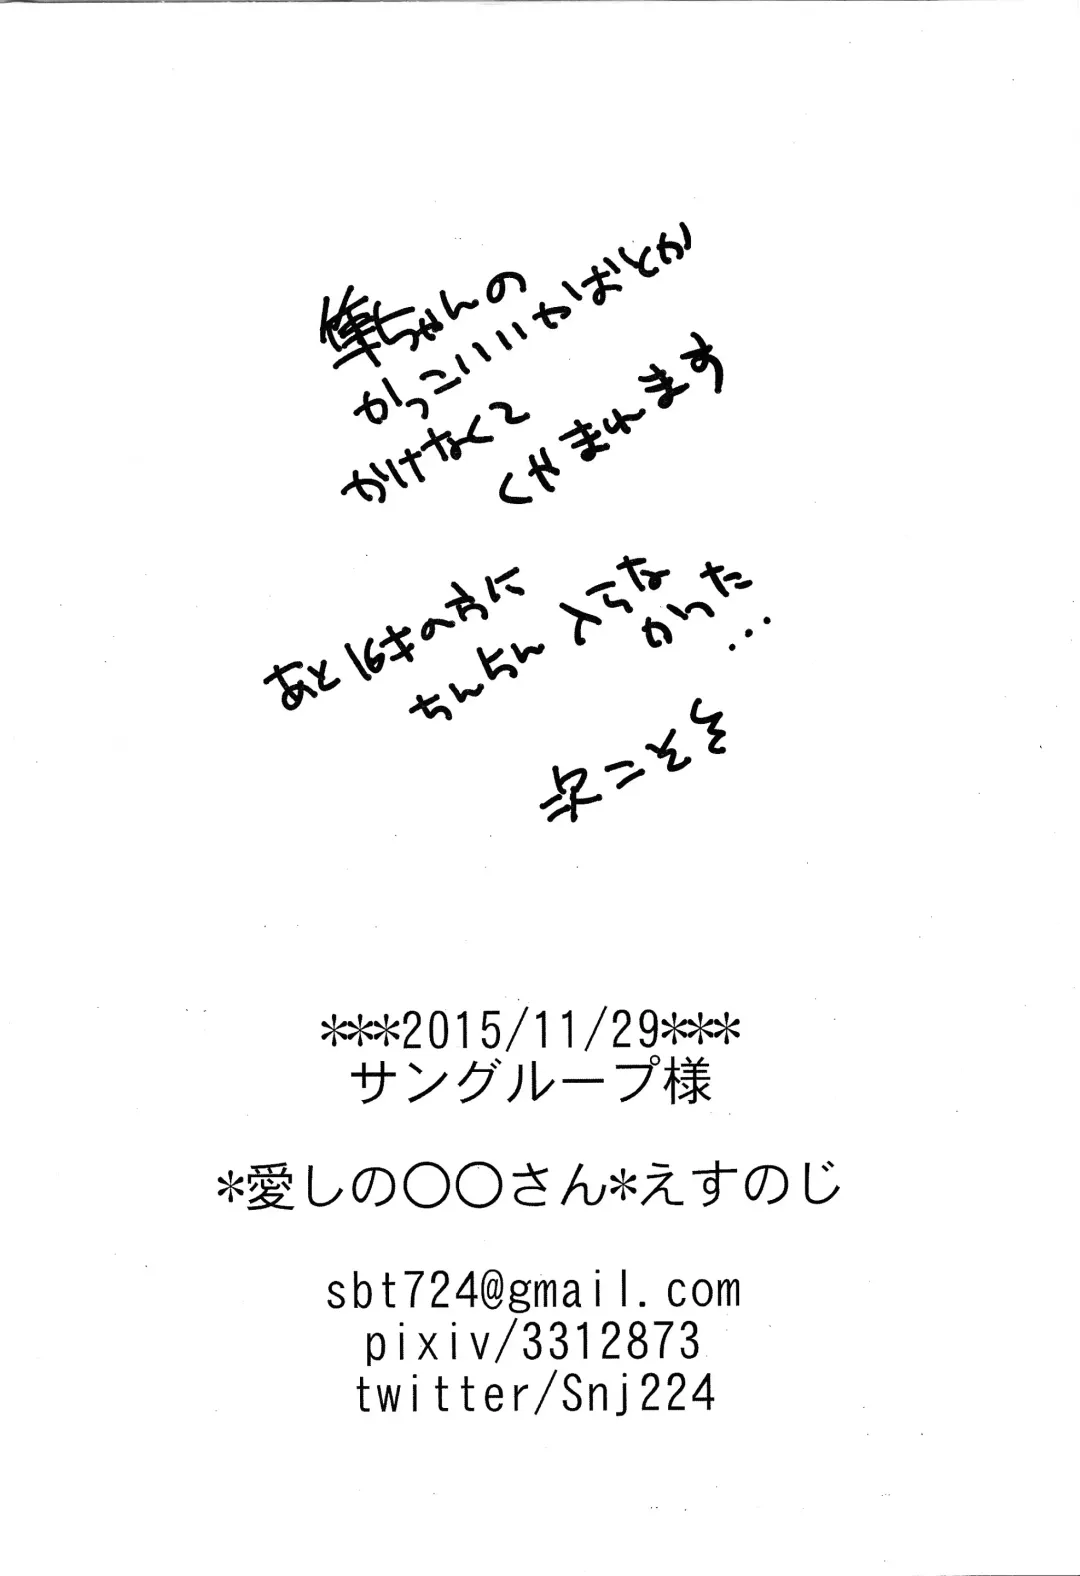 ちゃんの
かっこいいかおとか
かけなくて
くやまれます
あと16才の方に
ちんちん入らな
かった
...
次こそは
***2015/11/29***
サングループ様
*愛しの〇〇さん*えすのじ
sbt724@gmail.com
pixiv/3312873
twitter/Snj224